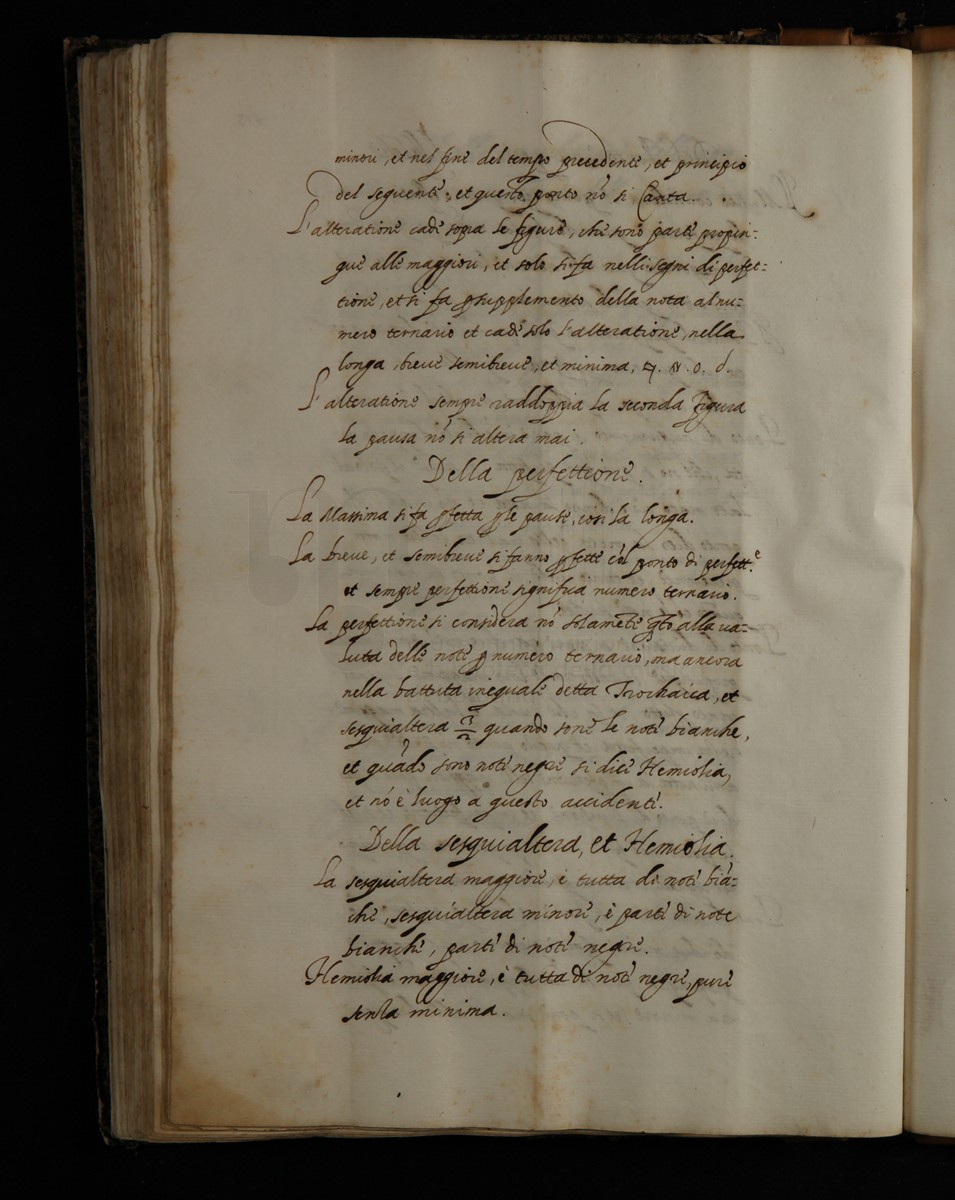 minori, et nel fine del tempo precedente, et principio
del seguente, et questo ponto nō si Canta.
L'alteratione cade sopra le figure, che sono parti propin-
que alle maggiori, et solo si fa nelli segni di perfet-
tione, et si fa ꝑ supplemento della nota al nu-
mero ternario et cade solo l'alteratione, nella
longa, breve semibreve, et minima,
L'alteratione sempre raddoppia la seconda figura
la pausa nō si altera mai.
Della perfettione.
La Massima si fa ꝑfetta ꝑ le pause, cosi la longa.
La breve, et semibreve si fanno ꝑfette col ponto di perfett.e
et sempre perfettione significa numero ternario.
La perfettione si considera nō solamēte qto alla va-
luta delle note ꝑ numero ternario, ma ancora
nella battuta ineguale detta Trochaica, et
sesquialtera 3/2 quando sono le note bianche,
et quādo sono note negre si dice Hemiolia,
et nō è luogo a questo accidente.
Della sesquialtera, et Hemiolia.
La sesquialtera maggiore, è tutta di note biā-
che, sesquialtera minore, è parte di note
bianche, parte di note negre.
Hemiolia maggiore, è tutta di note negre, pure
senza minima.